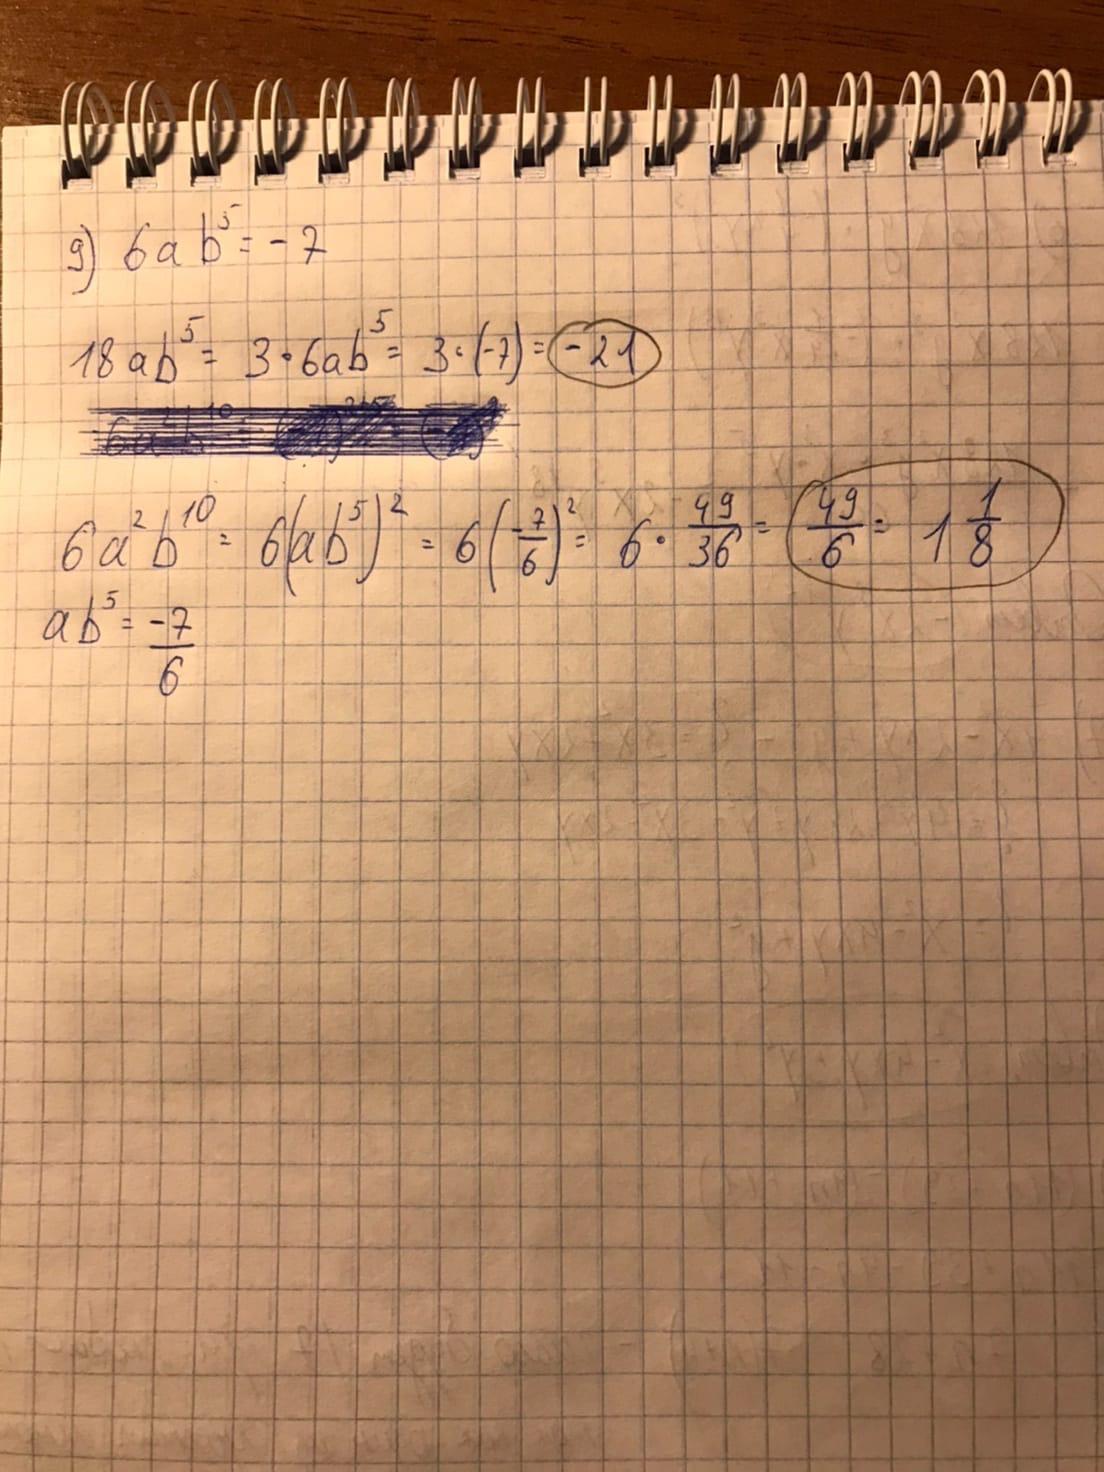 9) 6ab⁵ = -7
18ab⁵ = 3·6ab⁵ = 3·(-7) = -21
6a²b¹⁰ = 6(ab⁵)² = 6(-7/6)² = 6·49/36 = 49/6 = 1 1/8
ab⁵ = -7/6